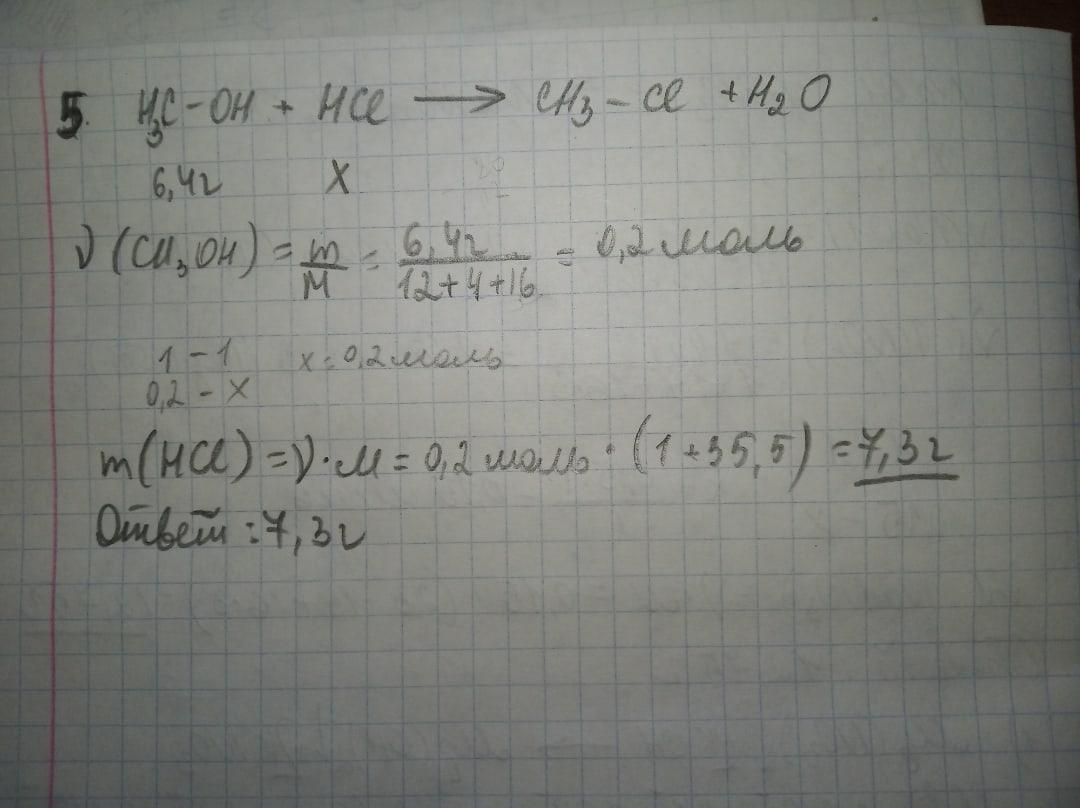 5. H₃C-OH + HCl ⟶ CH₃-Cl + H₂O
6,4г x
ν(CH₃OH) = m/M = 6,4г/12+4+16 = 0,2 моль
1 - 1 x = 0,2 моль
0,2 - x
m(HCl) = ν·M = 0,2 моль · (1+35,5) = 7,3г
Ответ: 7,3г